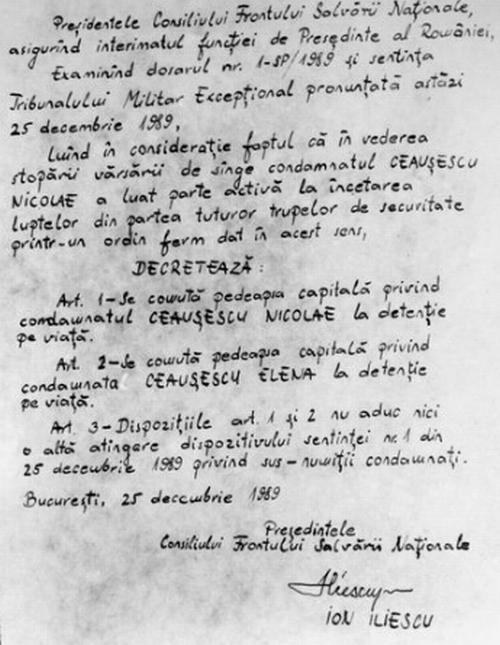 Preşidentele Consiliului Frontului Salvării Naţionale,
asigurînd interimatul funcţiei de Preşedinte al României,
Examinînd dosarul nr. 1-SP/1989 şi sentinţa
Tribunalului Militar Excepţional pronunţată astăzi
25 decembrie 1989,
Luînd în consideraţie faptul că în vederea
stopării vărsării de sînge condamnatul CEAUŞESCU
NICOLAE a luat parte activă la încetarea
luptelor din partea tuturor trupelor de securitate
printr-un ordin ferm dat în acest sens,
DECRETEAZĂ:
Art. 1-Se comută pedeapsa capitală privind
condamnatul CEAUŞESCU NICOLAE la detenţie
pe viaţă.
Art. 2-Se comută pedeapsa capitală privind
condamnata CEAUŞESCU ELENA la detenţie
pe viaţă.
Art. 3-Dispoziţiile art. 1 şi 2 nu aduc nici
o altă atingere dispozitivului sentinţei nr. 1 din
25 decembrie 1989 privind sus-numiţii condamnaţi.
Bucureşti, 25 decembrie 1989
Preşedintele
Consiliului Frontului Salvării Naţionale
Iliescu
ION ILIESCU